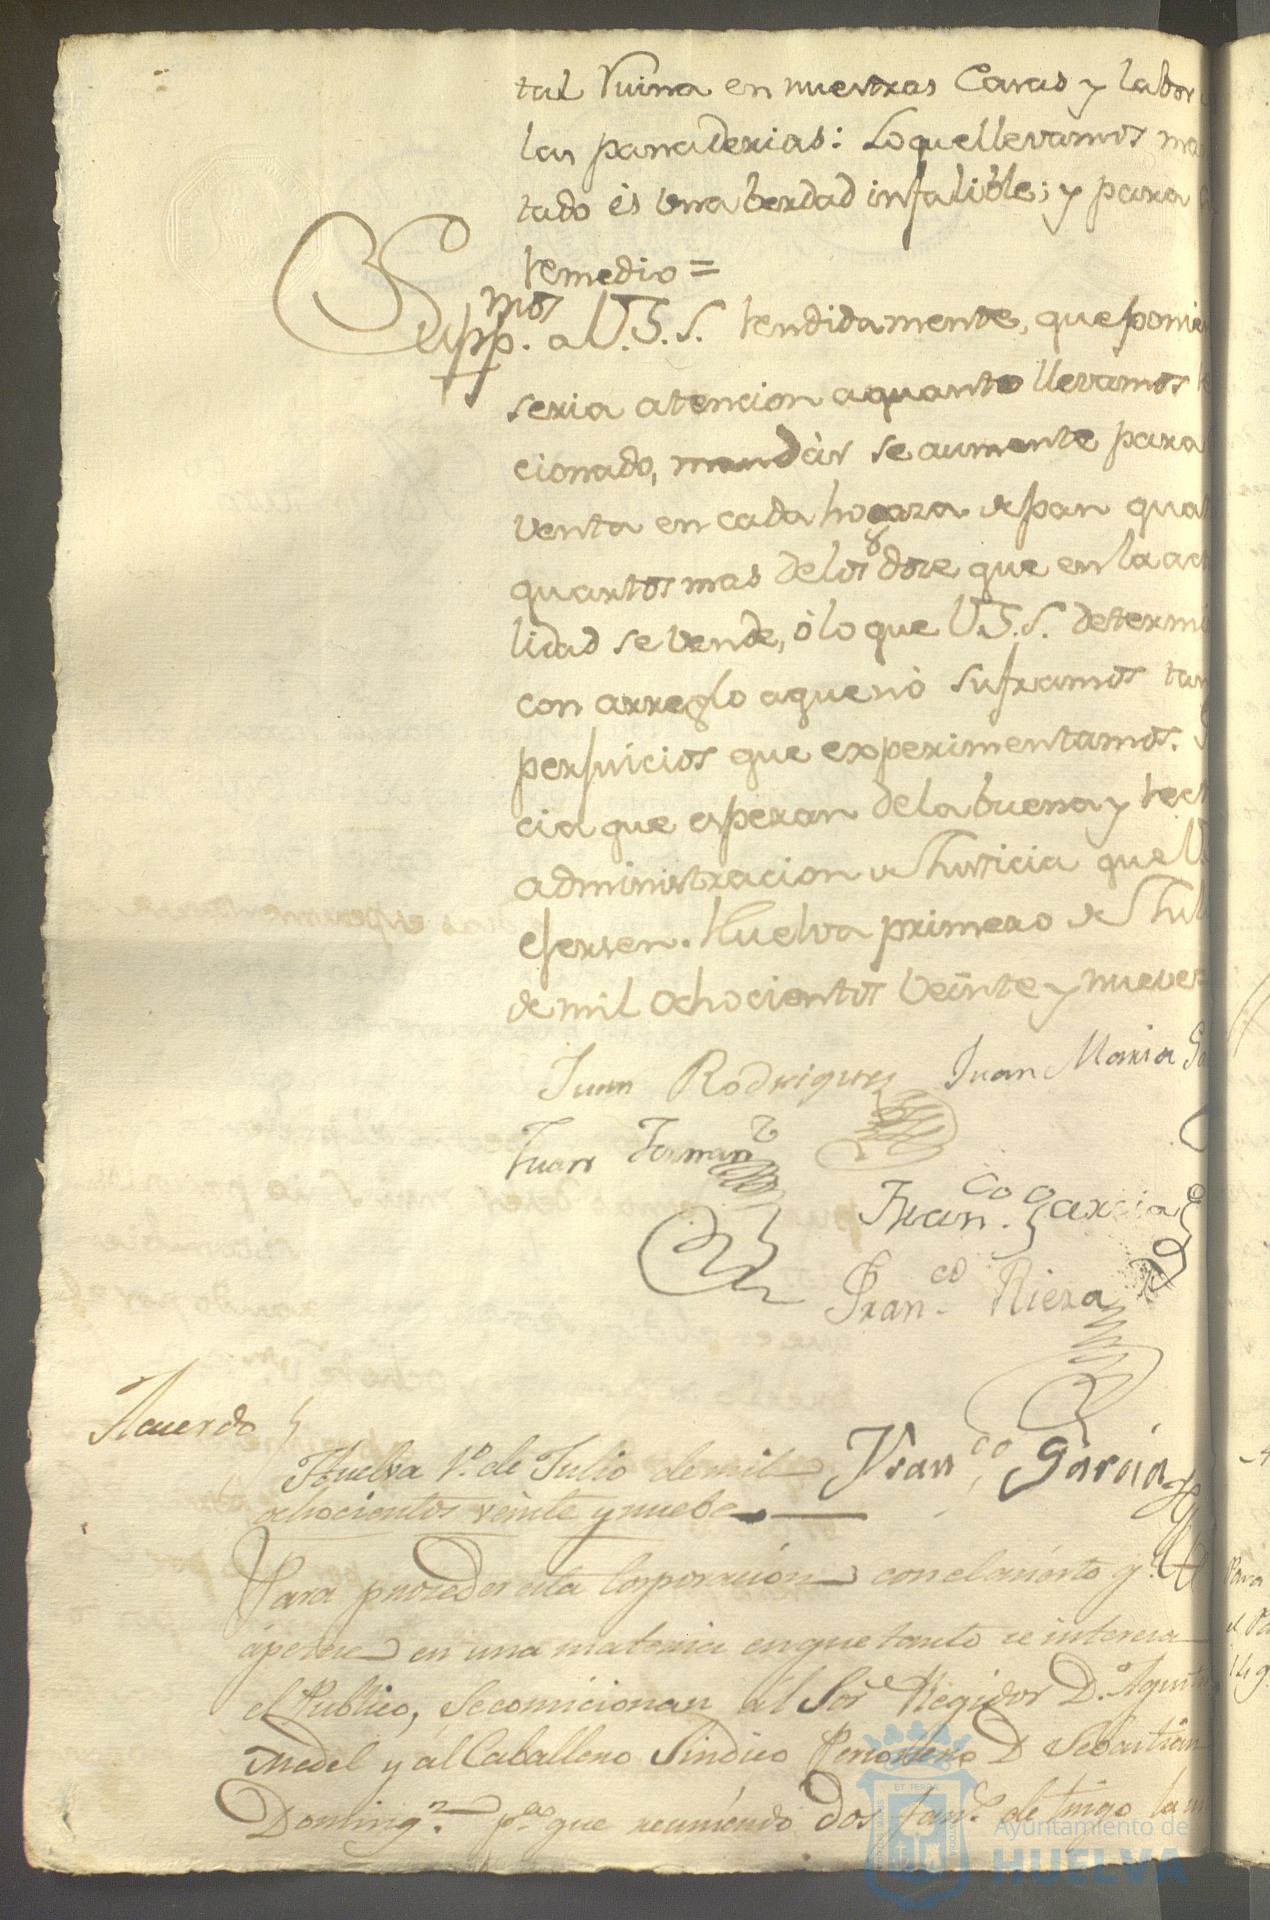 tal Ruina en nuestras Casas y labor
las panaderias: Lo quellevamos ma
tado ès una berdad infalible; y para
remedio =
Supp.mos a V.S.S. rendidamente, que ponien
seria atencion aquanto llevamos
cionado, mandàr se aumente para
venta en cada hogaza de pan quat
quartos mas delos doze que en la act
lidad se vende, ò lo que V.S.S. determi
con arreglo aque nò suframos tan
perjuicios que experimentamos.
cia que esperan dela buena y rect
administracion de Justicia que V
ejersen. Huelva primero de Jul
de mil ochocientos veinte y nueve
Juan Rodriguez Juan Maria Ga
Juan Fernan.z
Fran.co Garcia
Fran.co Riera
Acuerdo
Fran.co Garcia
Huelva 1.o de Julio de mil
ochocientos veinte y nuebe
Para proceder esta Corporacion con el acierto q.e
àpetece en una materia en que tanto se interesa
el Publico, Se comicionan àl Sor. Regidor D.n Agustin
Medel y àl Caballero Sindico Personero D. Sebastian
Doming.z p.a que reuniendo dos fan.s de trigo la
Ayuntamiento de
HUELVA